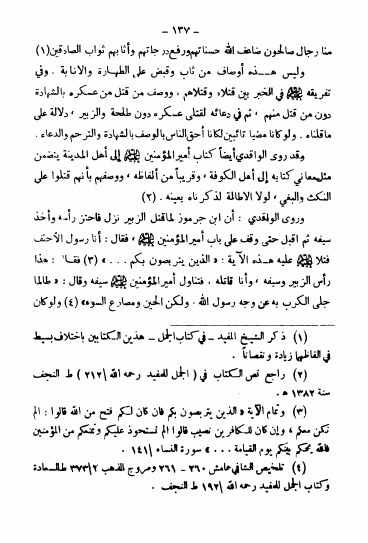 - ١٣٧ -
منا رجال صالحون ضاعف الله حسناتهم ورفع درجاتهم وأثابهم ثواب الصادقين (١)
وليس هــذه أوصاف من تاب وقبض على الطهارة والانابة . وفي
تفريقه ﷺ في الخبر بين قتلاه وقتلاهم ، ووصف من قتل من عسكره بالشهادة
دون من قتل منهم ، ثم في دعائه لقتلى عسكره دون طلحة والزبير ، دلالة على
ماقلناه . ولو كانا مضيا تائبين لكانا أحق الناس بالوصف بالشهادة والترحم والدعاء .
وقد روى الواقدي أيضاً كتاب أمير المؤمنين ﷺ إلى أهل المدينة يتضمن
مثل معاني كتابه إلى أهل الكوفة ، وقريباً من ألفاظه ، ووصفهم بأنهم قتلوا على
النكث والبغي ، لولا الاطالة لذكرناه بعينه . (٢)
وروى الواقدي : أن ابن جرموز لما قتل الزبير نزل فاحتز رأسه وأخذ
سيفه ثم اقبل حتى وقف على باب أمير المؤمنين ﷺ ، فقال : أنا رسول الأحنف
فتلا ﷺ عليه هــذه الآية : « الذين يتربصون بكم . . . » (٣) فقال : هذا
رأس الزبير وسيفه ، وأنا قاتله ، فتناول أمير المؤمنين ﷺ سيفه وقال : « طالما
جلى الكرب به عن وجه رسول الله . ولكن الحين ومصارع السوء » (٤) ولو كان
(١) ذكر الشيخ المفيد - في كتاب الجمل - هذين الكتابين باختلاف بسيط
في الفاظهما زيادة ونقصاناً .
(٢) راجع نص الكتاب في ( الجمل للمفيد رحمه الله / ٢١٢ ) ط النجف
سنة ١٣٨٢ هـ .
(٣) وتمام الآية « الذين يتربصون بكم فان كان لكم فتح من الله قالوا : الم
نكن معكم ، وإن كان للكافرين نصيب قالوا الم نستحوذ عليكم ونمنعكم من المؤمنين
فالله يحكم بينكم يوم القيامة . . . » سورة النساء / ١٤١ .
(٤) تلخيص الشافي هامش ٢٦٠ - ٢٦١ ومروج الذهب ٢ / ٣٧٣ ط السعادة
وكتاب الجمل للمفيد رحمه الله / ١٩٢ ط النجف .